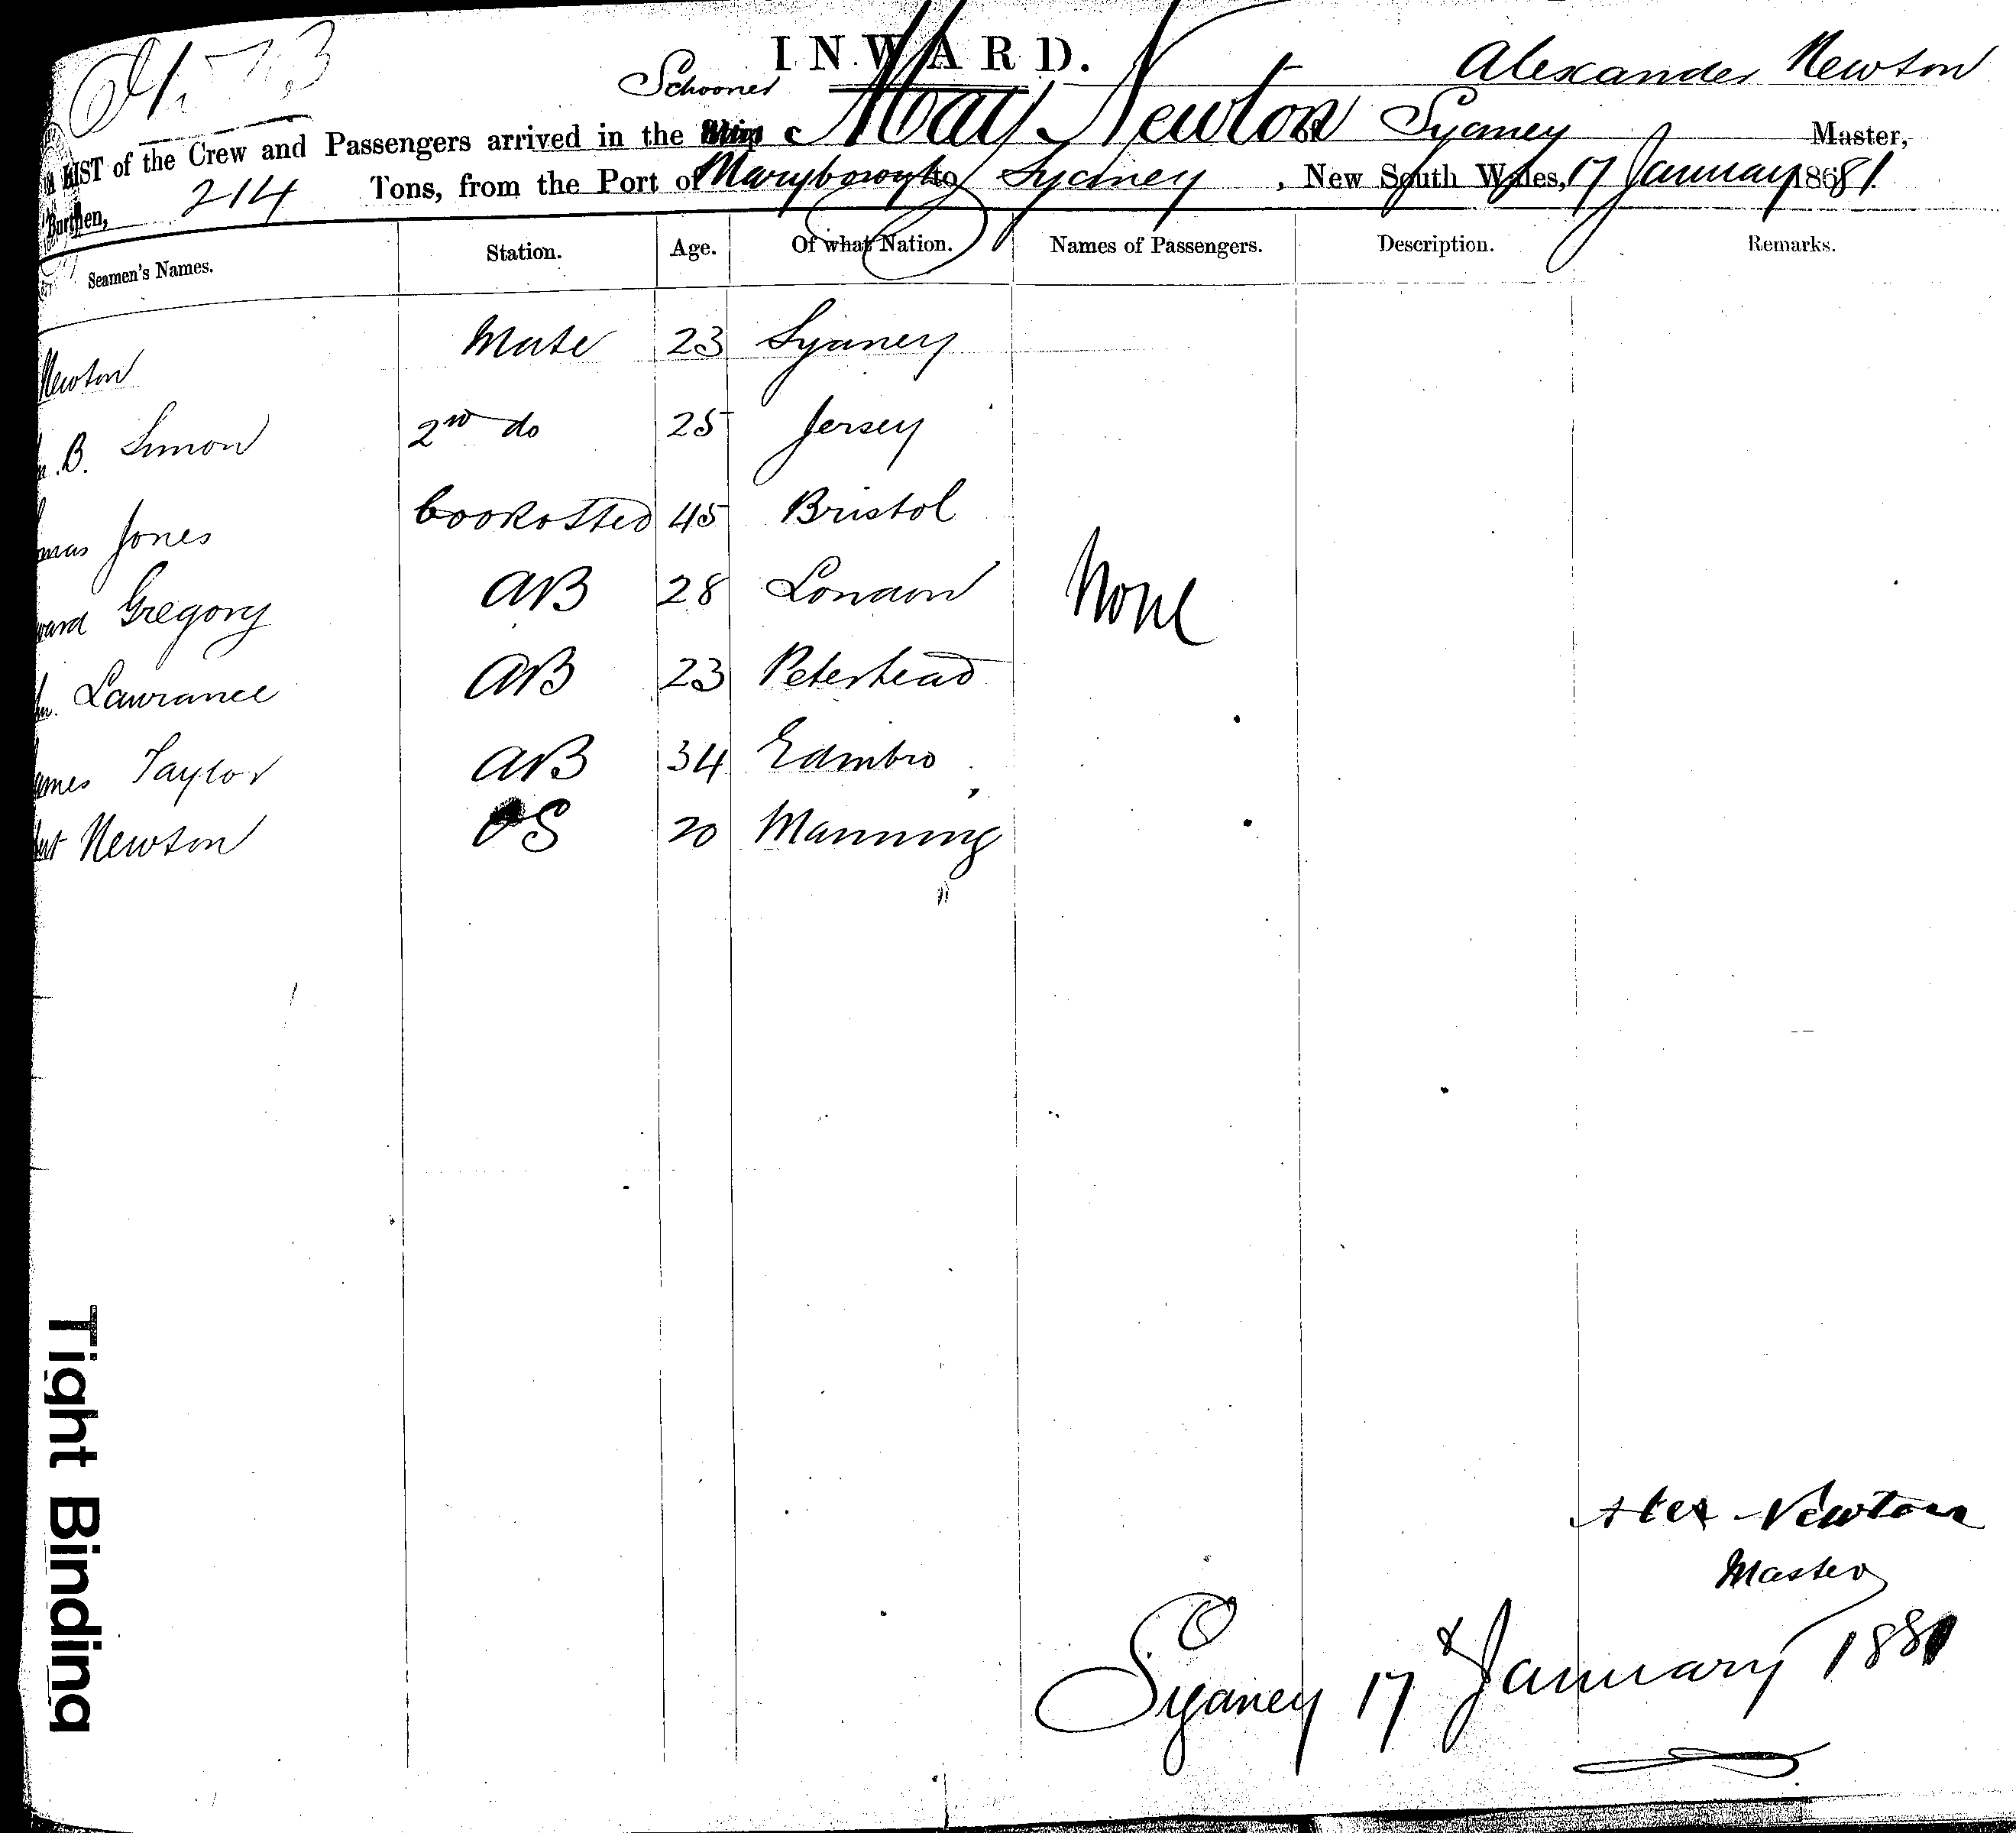 INWARD.
Schooner Alexander Newton
A LIST of the Crew and Passengers arrived in the Ship May Newton of Sydney Master,
Burthen, 214 Tons, from the Port of Maryborough to Sydney, New South Wales, 17 January 1881
Seamen's Names. Station. Age. Of what Nation. Names of Passengers. Description. Remarks.
Newton Mate 23 Sydney
B. Simon 2nd do 25 Jersey
Jones Cook & Sted 45 Bristol
Gregory AB 28 London
None
Lawrance AB 23 Peterhead
Taylor AB 34 Edinbro
Newton OS 20 Manning
Alex Newton
Master
Sydney 17 January 1881
Tight Binding